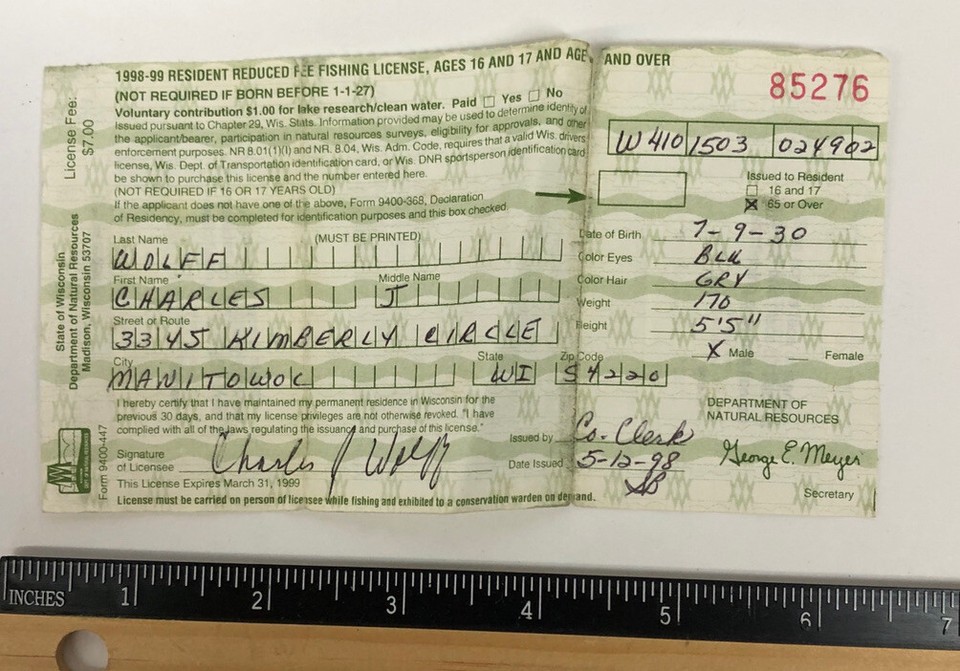 1998-99 RESIDENT REDUCED FEE FISHING LICENSE, AGES 16 AND 17 AND AGE AND OVER
(NOT REQUIRED IF BORN BEFORE 1-1-27)
85276
Voluntary contribution $1.00 for lake research/clean water. Paid ☐ Yes ☐ No
Issued pursuant to Chapter 29, Wis. Stats. Information provided may be used to determine identity of
the applicant/bearer, participation in natural resources surveys, eligibility for approvals, and other
enforcement purposes. NR 8.01(1)(l) and NR 8.04, Wis. Adm. Code, requires that a valid Wis. drivers
license, Wis. Dept. of Transportation identification card, or Wis. DNR sportsperson identification card
be shown to purchase this license and the number entered here.
(NOT REQUIRED IF 16 OR 17 YEARS OLD)
If the applicant does not have one of the above, Form 9400-368, Declaration
of Residency, must be completed for identification purposes and this box checked.
W410 1503 024902
Issued to Resident
☐ 16 and 17
☒ 65 or Over
License Fee:
$7.00
State of Wisconsin
Department of Natural Resources
Madison, Wisconsin 53707
Form 9400-447
Last Name (MUST BE PRINTED)
WOLFF
First Name Middle Name
CHARLES J
Street or Route
3345 KIMBERLY CIRCLE
City State Zip Code
MANITOWOC WI 54220
Date of Birth 7-9-30
Color Eyes BLU
Color Hair GRY
Weight 170
Height 5'5"
X Male Female
I hereby certify that I have maintained my permanent residence in Wisconsin for the
previous 30 days, and that my license privileges are not otherwise revoked. "I have
complied with all of the laws regulating the issuance and purchase of this license."
Signature
of Licensee Charles J Wolff
Issued by Co. Clerk
Date Issued 5-12-98
SB
DEPARTMENT OF
NATURAL RESOURCES
George E. Meyer
Secretary
This License Expires March 31, 1999
License must be carried on person of licensee while fishing and exhibited to a conservation warden on demand.
INCHES 1 2 3 4 5 6 7